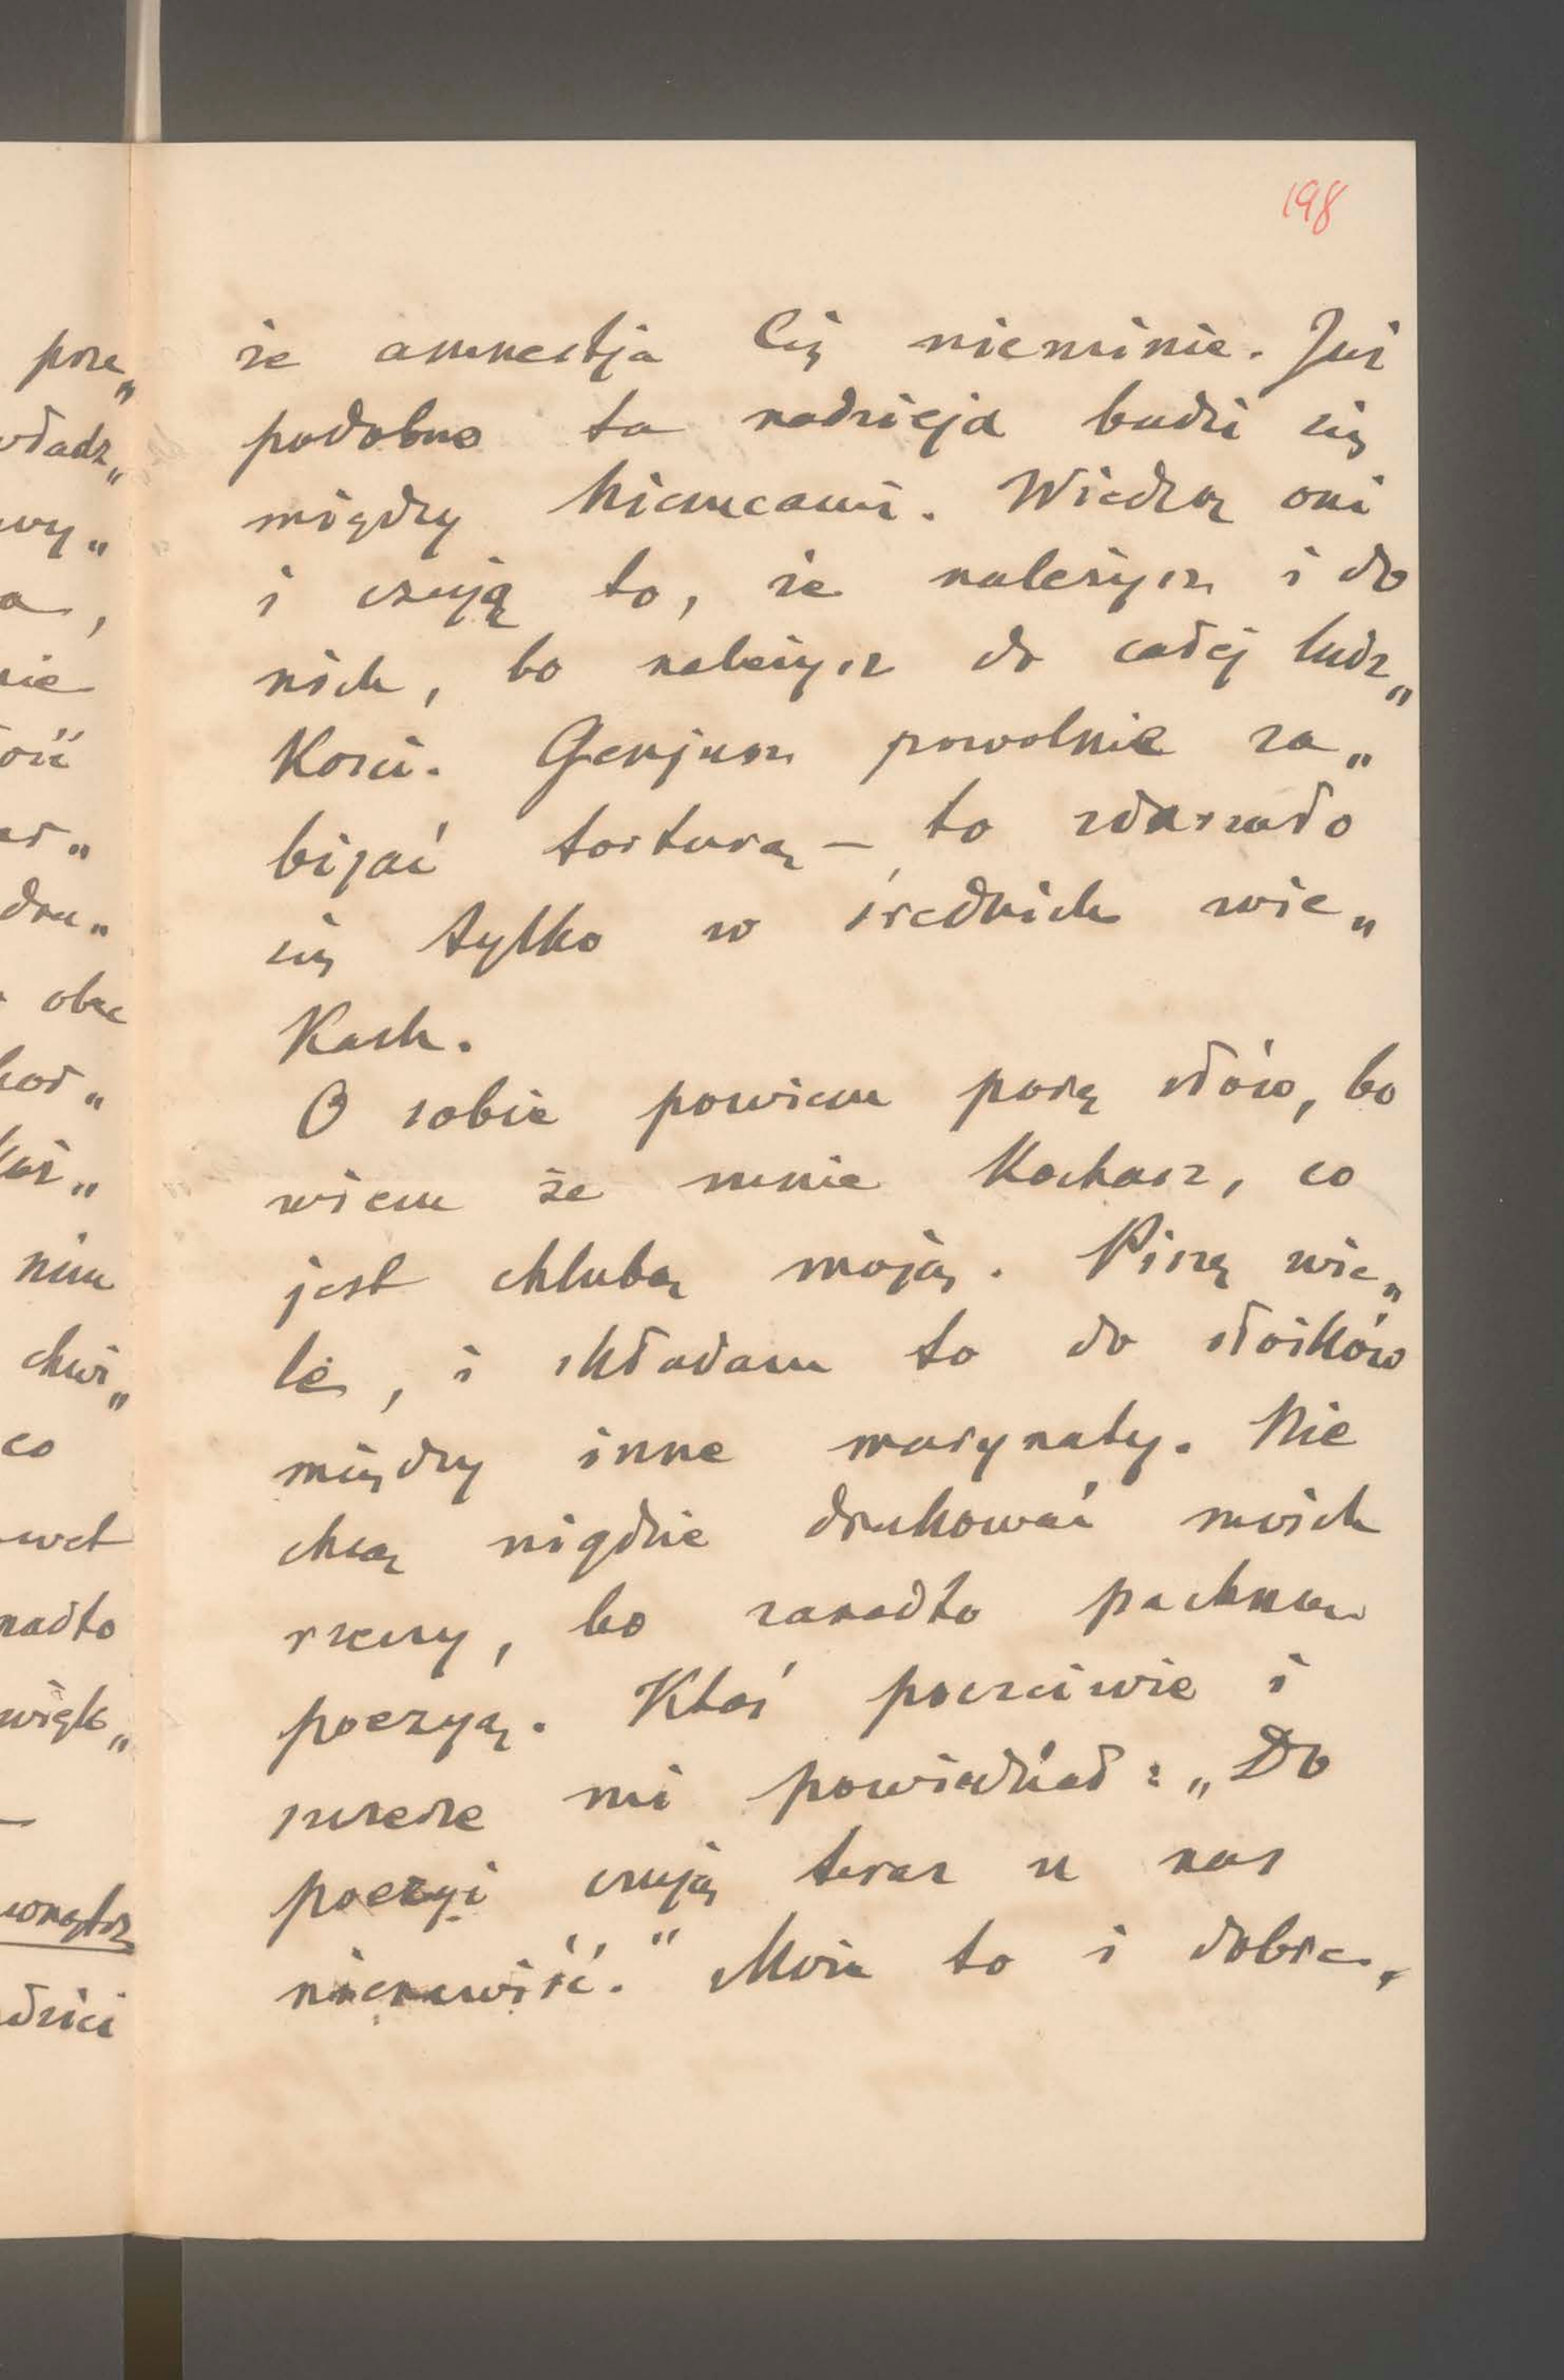 198
że amnestja Cię nieminie. Już
podobno ta nadzieja budzi się
między Niemcami. Wiedzą oni
i czują to, że należysz i do
nich, bo należysz do całej ludz„
kości. Genjusz powolnie za„
bijać torturą – to zdarzało
się tylko w średnich wie„
kach.
O sobie powiem parę słów, bo
wiem że mnie kochasz, co
jest chlubą moją. Piszę wie„
le, i składam to do słoików
między inne marynaty. Nie
chcą nigdzie drukować moich
rzeczy, bo zanadto pachną
poezyą. Ktoś poczciwie i
szczerze mi powiedział: „Do
poezyi czują teraz u nas
nienawiść.“ Może to i dobre,
prze„
władz„
wy„
a,
nie
ość
ał„
dru„
obec
hoł„
każ„
nim
chwi„
co
wet
nadto
więk„
—
wnętrz
dzici